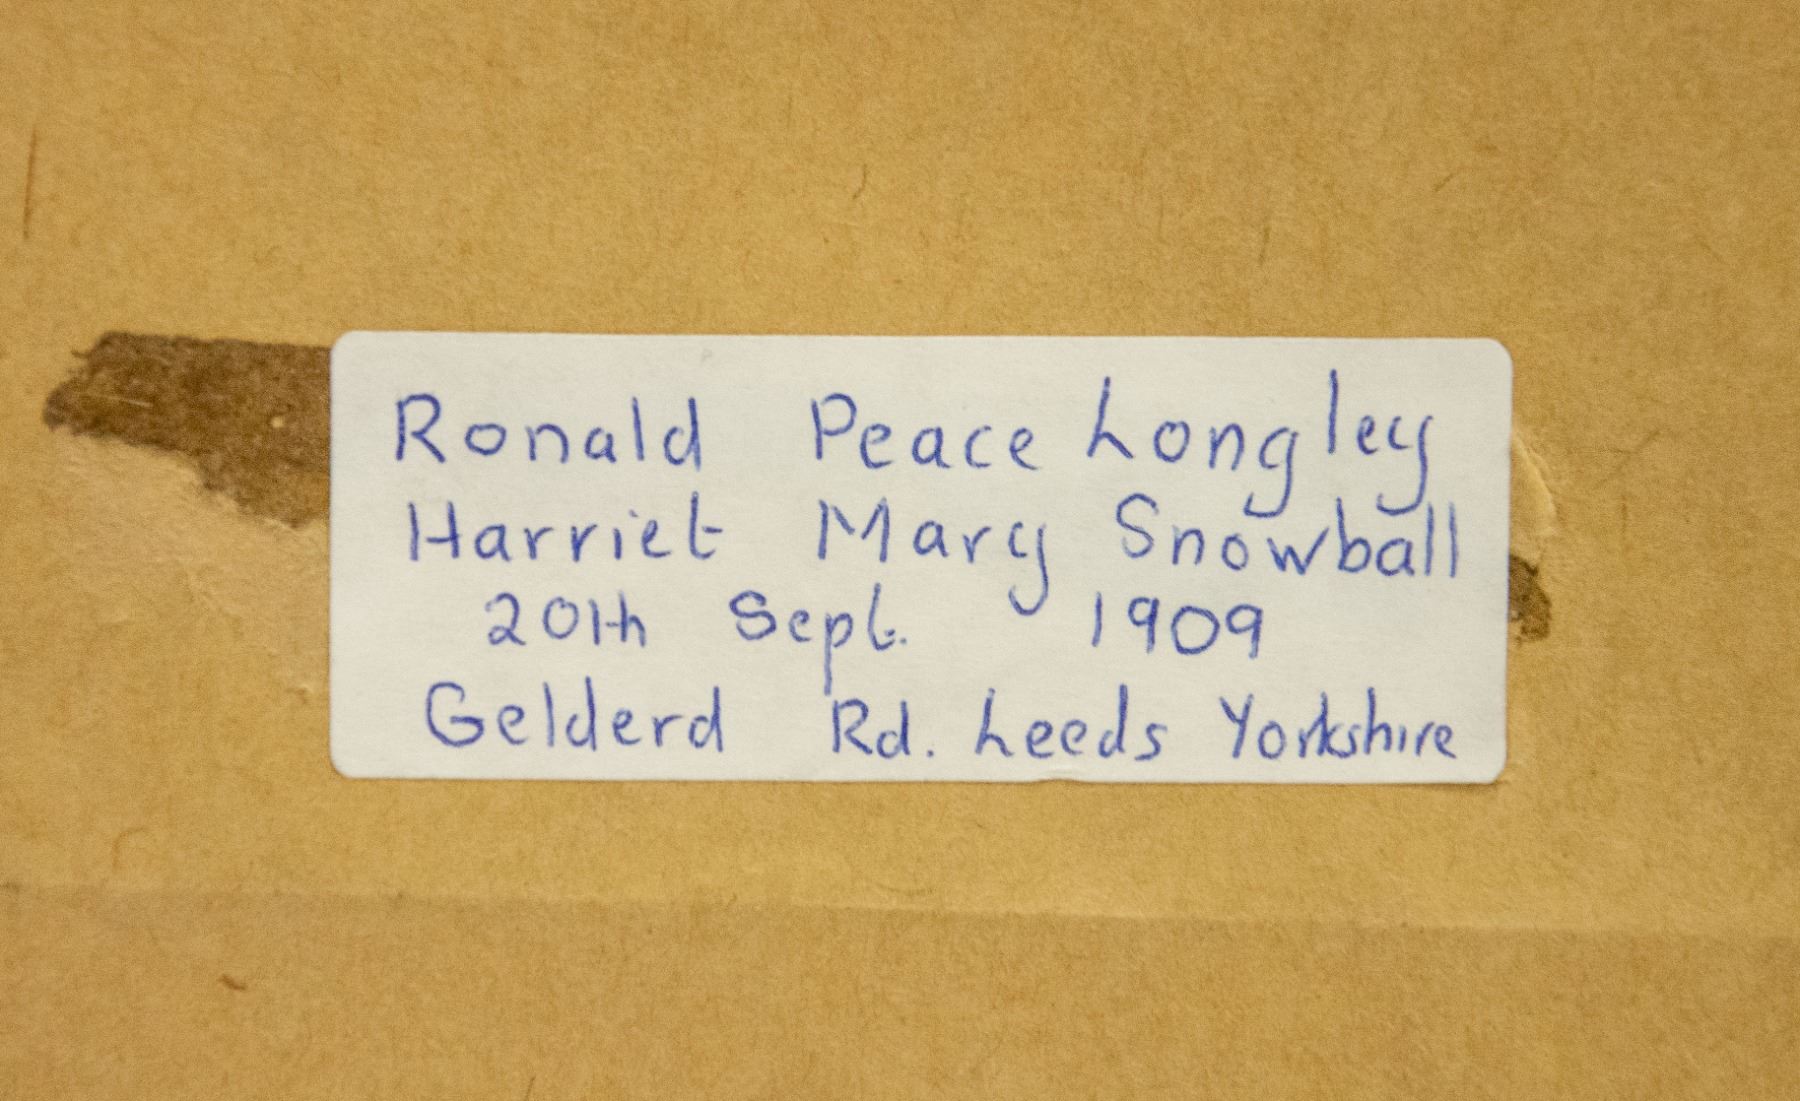 Ronald Peace Longley
Harriet Mary Snowball
20th Sept. 1909
Gelderd Rd. Leeds Yorkshire